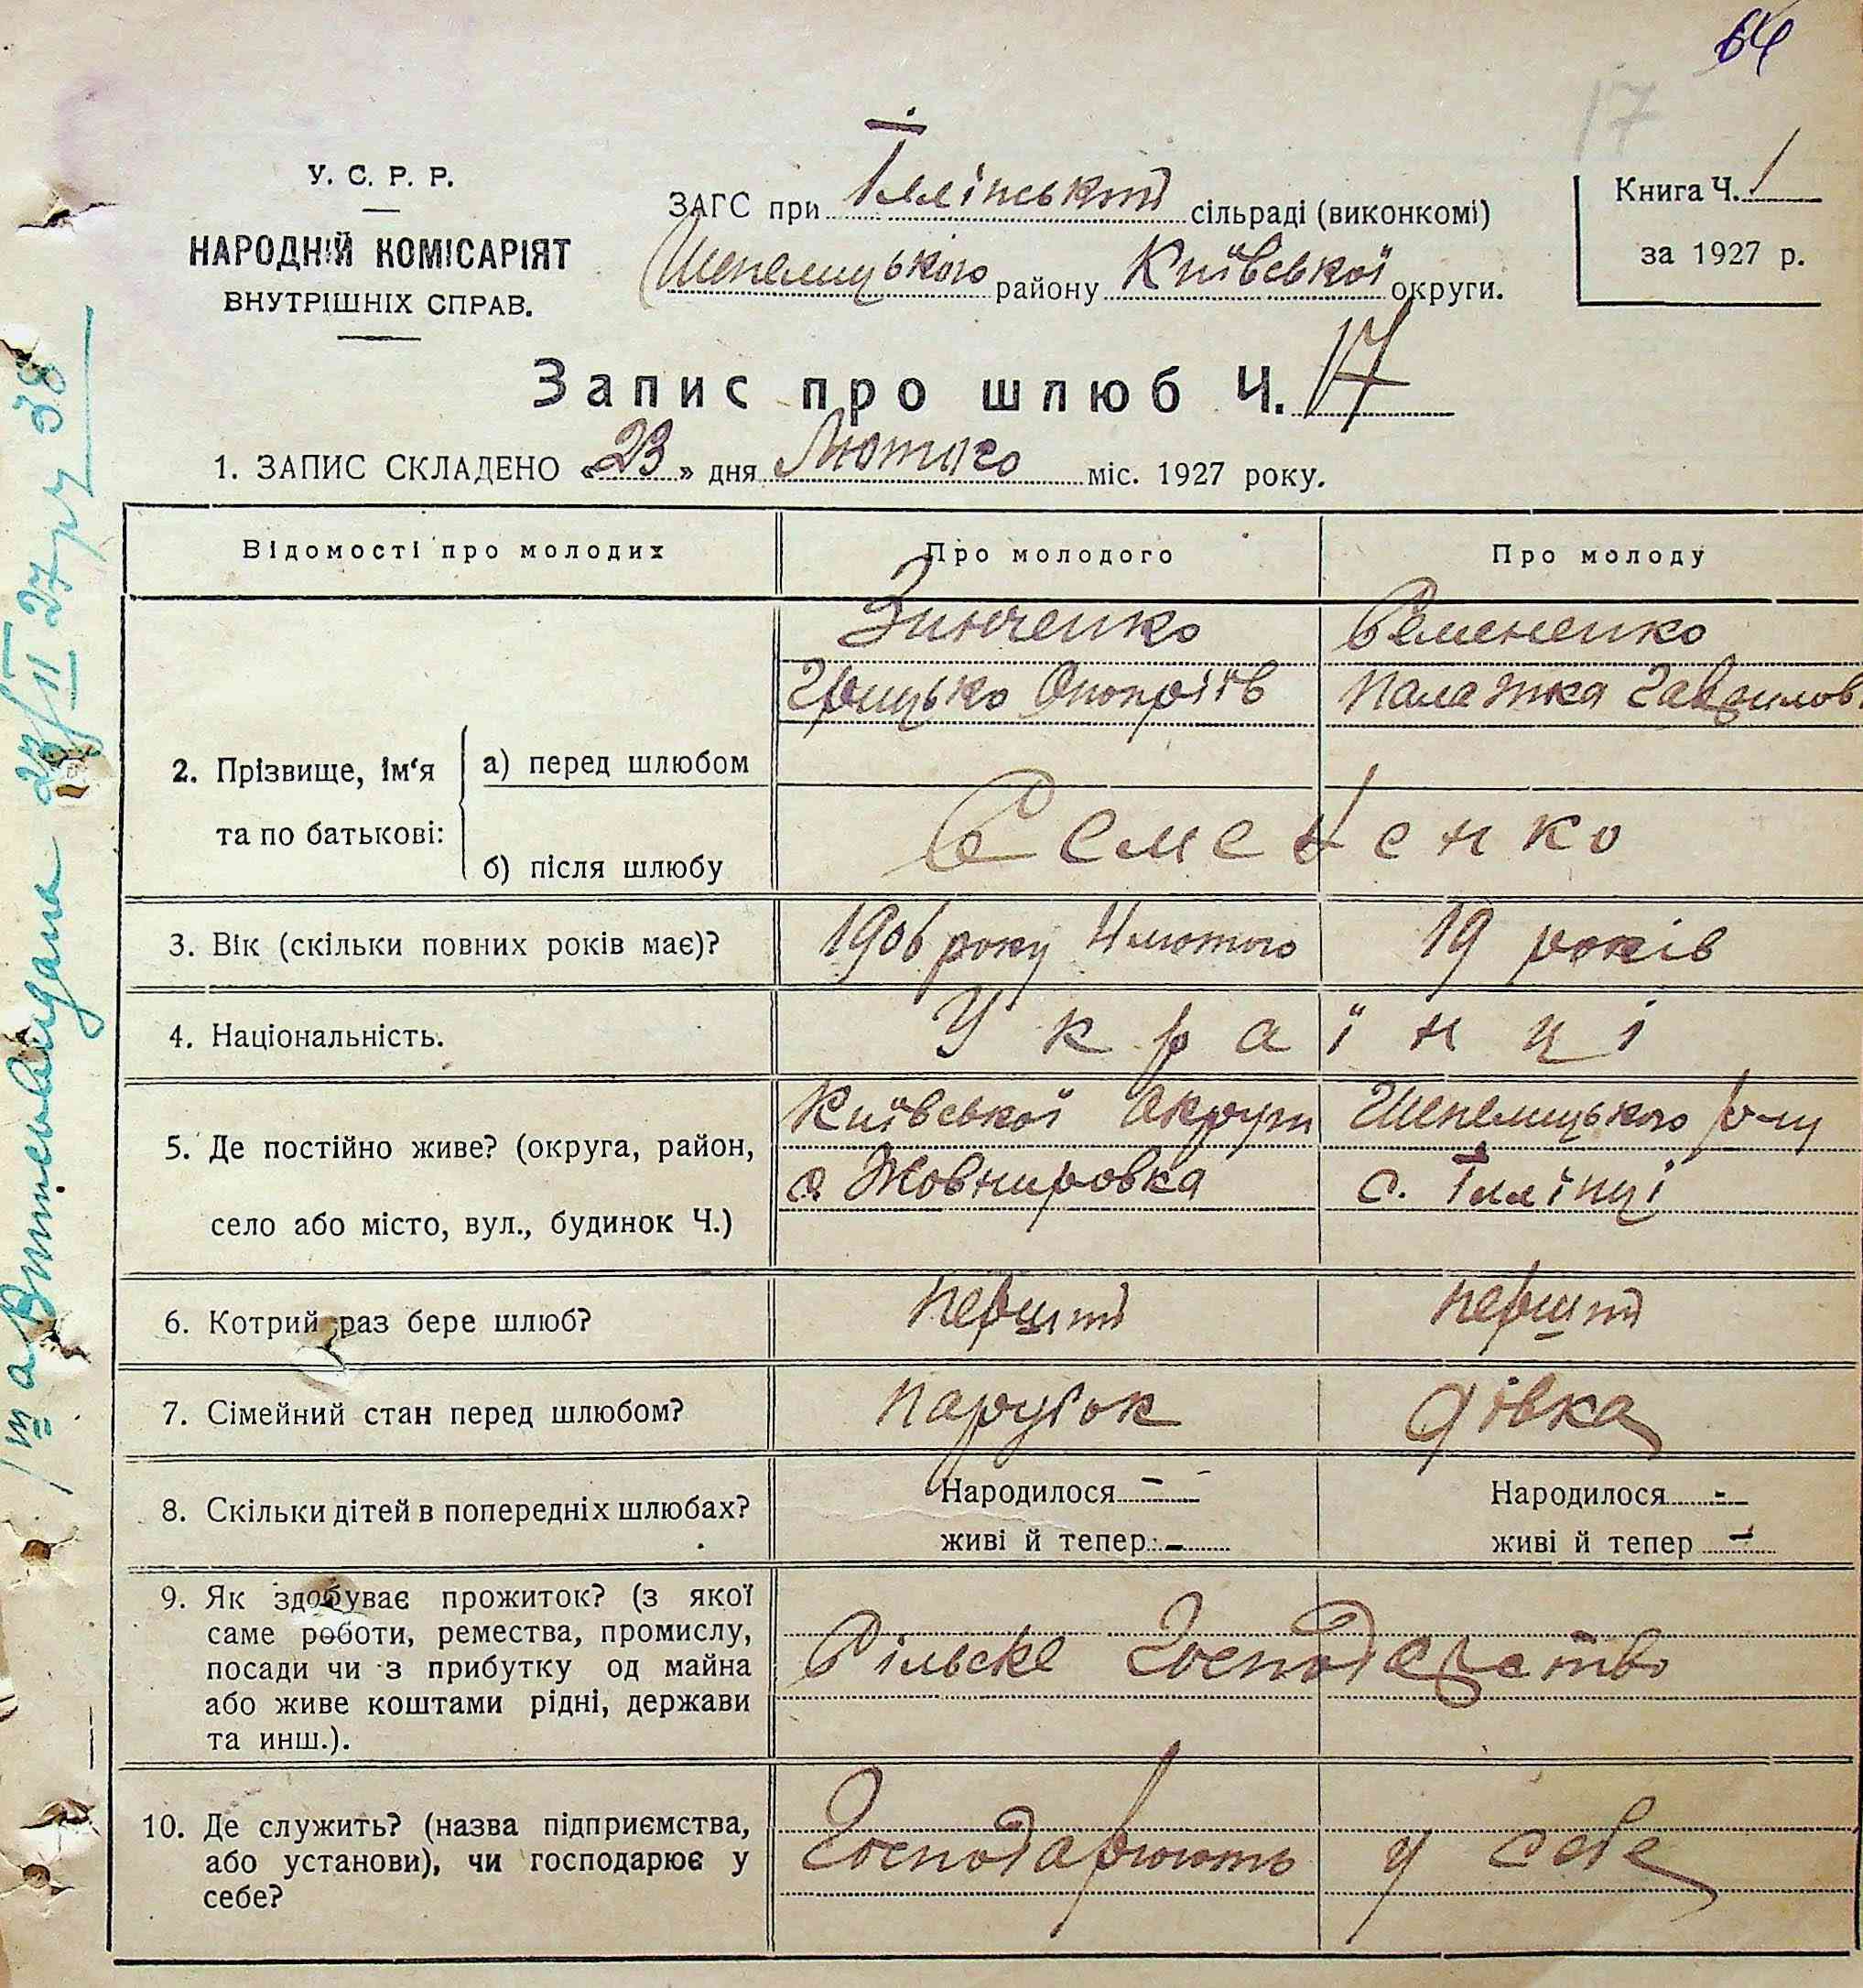 64
17
У. С. Р. Р.
НАРОДНІЙ КОМІСАРІЯТ
ВНУТРІШНІХ СПРАВ.
ЗАГС при Іллінській сільраді (виконкомі)
Шепелицького району Київської округи.
Книга Ч. 1
за 1927 р.
Запис про шлюб Ч. 17
1. ЗАПИС СКЛАДЕНО «23» дня Лютого міс. 1927 року.
Відомості про молодих Про молодого Про молоду
2. Прізвище, ім'я та по батькові:
а) перед шлюбом
Зинченко
Грицько
Семененко
Палажка Гаврилов.
б) після шлюбу
Семененко
3. Вік (скільки повних років має)? 1906 року 4 лютого 19 років
4. Національність. Українці
5. Де постійно живе? (округа, район,
село або місто, вул., будинок Ч.)
Київської Округи Шепелицького р-ну
с. Жовнировка с. Іллінці
6. Котрий раз бере шлюб? перший перший
7. Сімейний стан перед шлюбом? парубок дівка
8. Скільки дітей в попередніх шлюбах? Народилося - Народилося -
живі й тепер - живі й тепер -
9. Як здобуває прожиток? (з якої
саме роботи, ремества, промислу,
посади чи з прибутку од майна
або живе коштами рідні, держави
та инш.).
Сільске Господарство
10. Де служить? (назва підприємства,
або установи), чи господарює у
себе?
Господарюють у себе